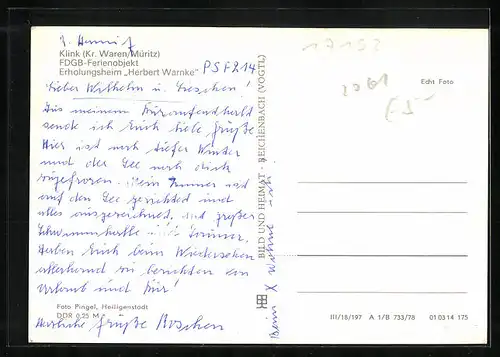 Klink (Kr. Waren/Müritz)
FDGB-Ferienobjekt
Erholungsheim „Herbert Warnke" PSF 214
Lieber Wilhelm u. Lieschen!
Aus meinem Kuraufenthalt
sende ich Euch liebe Grüße
Hier ist noch tiefer Winter
und der See noch dick
zugefroren. Mein Zimmer ist
auf den See gerichtet und
alles ausgezeichnet, mit großer
Schwimmhalle und Sauna.
Haben Euch beim Wiedersehen
allerhand zu berichten von
Urlaub und Kur!
Foto Pingel, Heiligenstadt
DDR 0,25 M
Herzliche Grüße
Beim X wohne ich.
BILD UND HEIMAT · REICHENBACH (VOGTL)
17152
Echt Foto
III/18/197 A 1/B 733/78 01 03 14 175